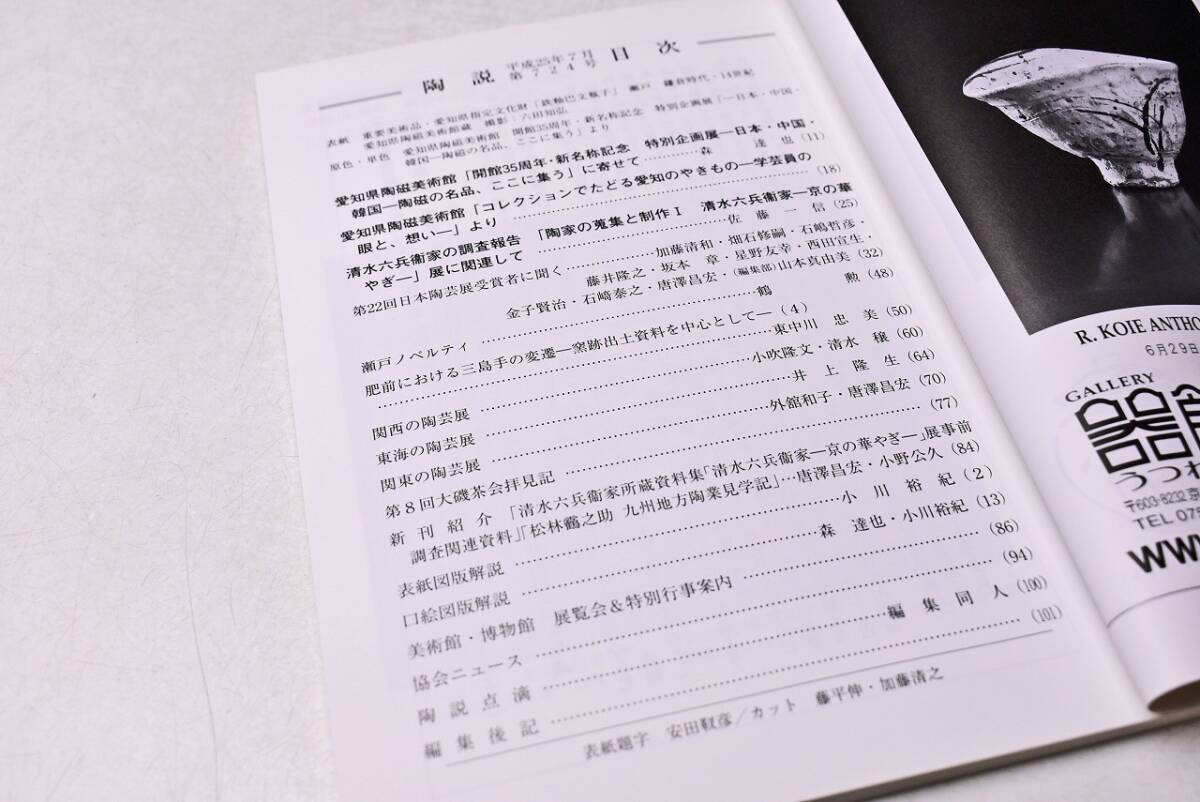 陶説 平成25年7月 第724号 目次
表紙 重要美術品・愛知県指定文化財「鉄釉巴文瓶子」 瀬戸 鎌倉時代・14世紀
愛知県陶磁美術館蔵 撮影:六田知弘
原色・単色 愛知県陶磁美術館 開館35周年・新名称記念 特別企画展「一日本・中国・
韓国一陶磁の名品、ここに集う」より
愛知県陶磁美術館「開館35周年・新名称記念 特別企画展―日本・中国・
韓国―陶磁の名品、ここに集う」に寄せて…………森 達也(11)
愛知県陶磁美術館「コレクションでたどる愛知のやきもの―学芸員の
眼と、想い―」より…………(18)
清水六兵衞家の調査報告 「陶家の蒐集と制作Ⅰ 清水六兵衞家―京の華
やぎ―」展に関連して…………佐藤一信(25)
第22回日本陶芸展受賞者に聞く…………加藤清和・畑石修嗣・石嶋哲彦・
藤井隆之・坂本 章・星野友幸・西田宣生・
金子賢治・石﨑泰之・唐澤昌宏・(編集部)山本真由美(32)
瀬戸ノベルティ…………鶴 勲(48)
肥前における三島手の変遷―窯跡出土資料を中心として―(4)
…………東中川忠美(50)
関西の陶芸展…………小吹隆文・清水 穣(60)
東海の陶芸展…………井上隆生(64)
関東の陶芸展…………外舘和子・唐澤昌宏(70)
第8回大磯茶会拝見記…………(77)
新刊紹介 「清水六兵衞家所蔵資料集「清水六兵衞家―京の華やぎ―」展事前
調査関連資料」「松林鶴之助 九州地方陶業見学記」…唐澤昌宏・小野公久(84)
表紙図版解説…………小川裕紀(2)
口絵図版解説…………森 達也・小川裕紀(13)
美術館・博物館 展覧会&特別行事案内…………(86)
協会ニュース…………(94)
陶説点滴…………編集同人(100)
編集後記…………(101)
表紙題字 安田靫彦/カット 藤平伸・加藤清之
R. KOIE ANTHO
6月29日
GALLERY
器館
うつわ
〒603-8232 京
TEL 075
WWW